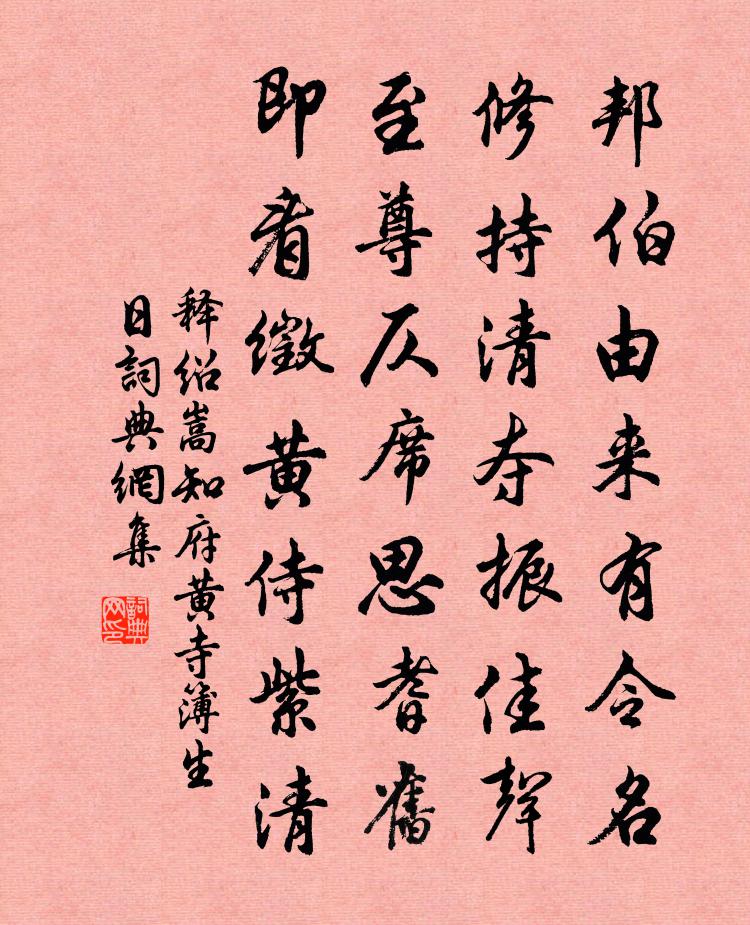 邦伯由来有令名
修持清夯振佳聲
至尊仄席思耆舊
即看徵黄侍紫清
释绍嵩知府黄寺簿生
日詞典網集
詞典
网印